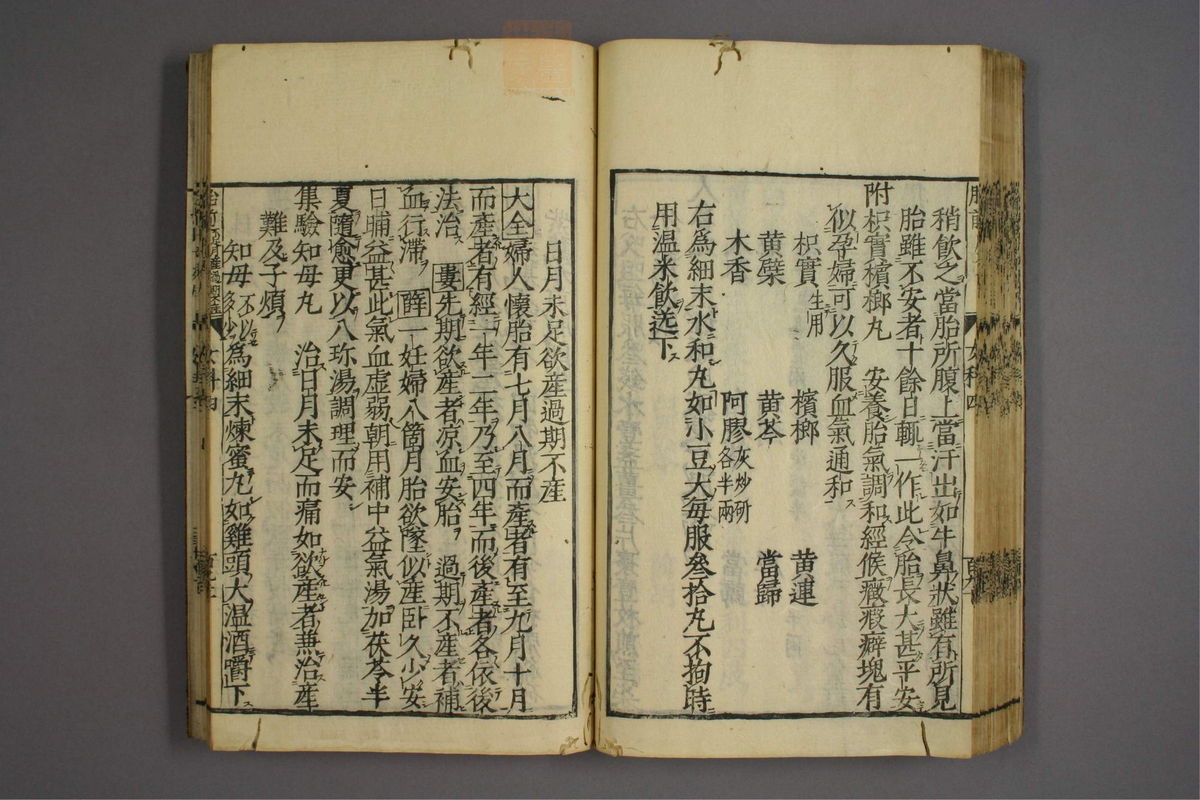 稍飲之當胎所腹上當汗出如牛鼻狀雖有所見
胎雖不安者十餘日輒一作此令胎長大甚平安
附枳實檳榔丸　安養胎氣調和經候癥瘕癖塊有
似孕婦可以久服血氣通和
枳實生用　檳榔　黄連
黄蘗　黄芩　當歸
木香　阿膠灰炒研各半兩
右為細末水和丸如小豆大每服叄拾丸不拘時
用温米飲送下
日月未足欲産過期不産
大全婦人懷胎有七月八月而産者有至九月十月
而産者有經一年二年乃至四年而後産者各依後
法治　婁先期欲産者凉血安胎　過期不産者補
血行滯　薛一妊婦八箇月胎欲墜似産卧久少安
日晡益甚此氣血虛弱朝用補中益氣湯加茯苓半
夏隨愈更以八珎湯調理而安
集驗知母丸　治日月未足而痛如欲産者兼治産
難及子煩
知母不以多少為細末煉蜜丸如雞頭大温酒嚼下